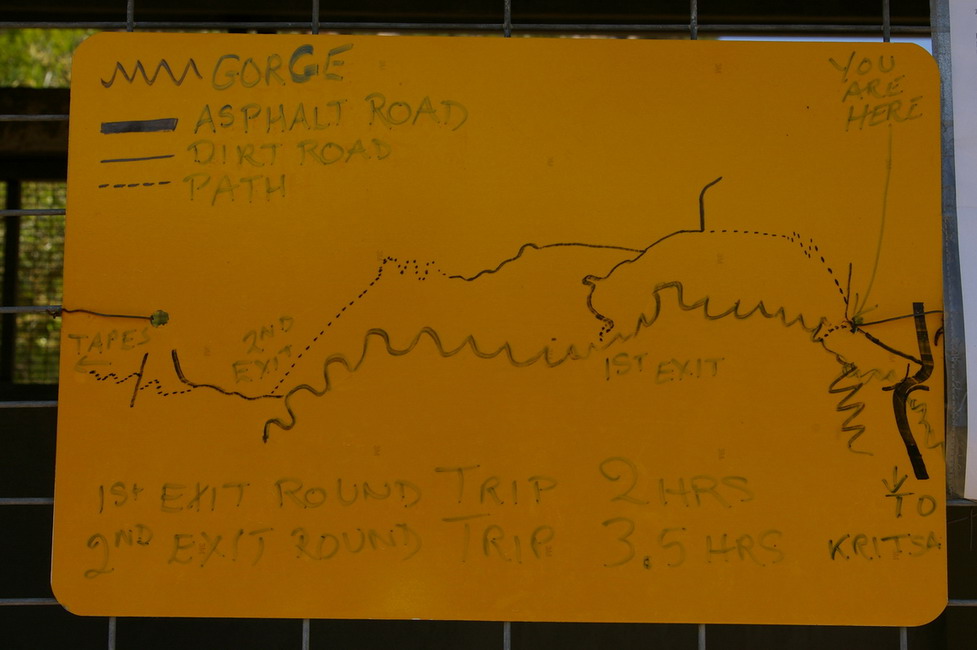 GORGE
ASPHALT ROAD
DIRT ROAD
PATH
YOU
ARE
HERE
TAPES
2ND
EXIT
1ST EXIT
1st EXIT ROUND TRIP 2 HRS
2ND EXIT ROUND TRIP 3.5 HRS
TO
KRITSA